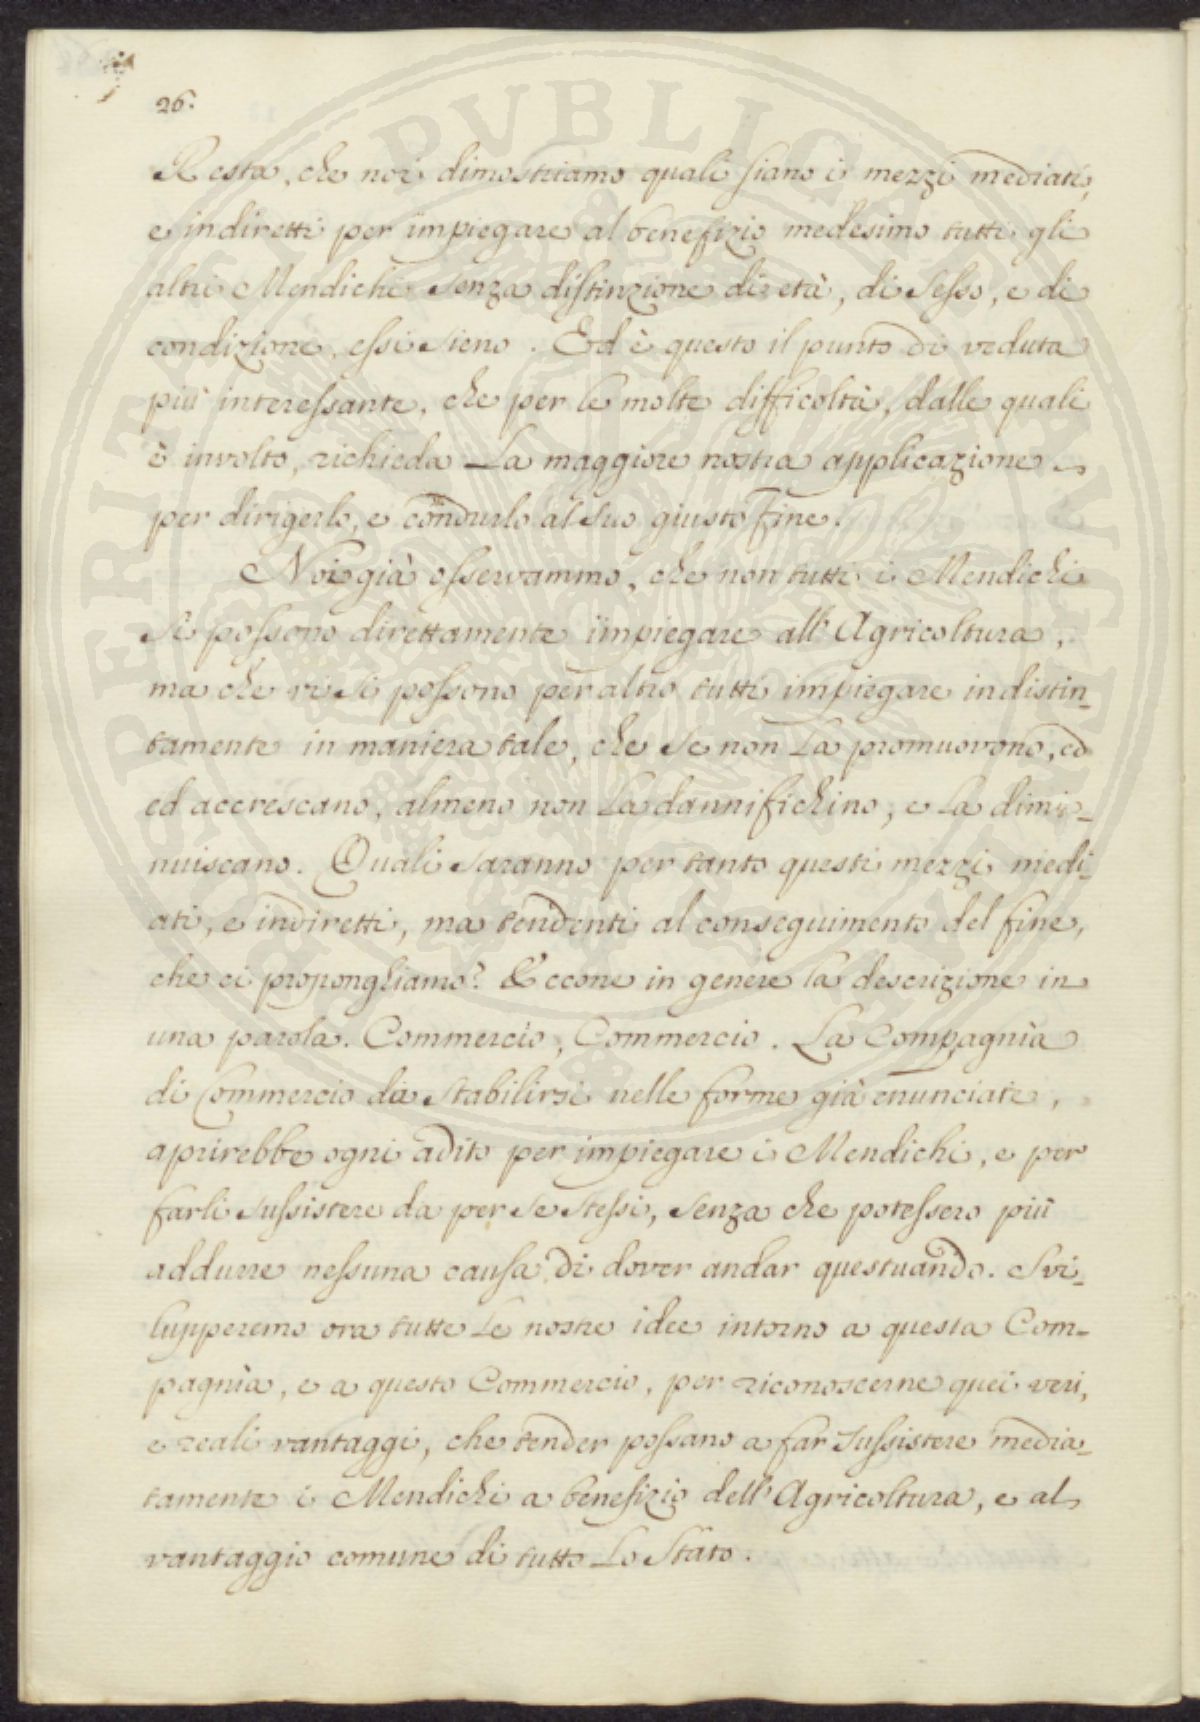 26.
Resta, che noi dimostriamo quali siano i mezzi mediati,
e indiretti per impiegare al benefizio medesimo tutti gli
altri Mendichi senza distinzione di età, di sesso, e di
condizione, essi sieno. Ed è questo il punto di veduta
più interessante, che per le molte difficoltà, dalle quali
è involto, richieda La maggiore nostra applicazione
per dirigerlo, e condurlo al suo giusto fine.
Noi già osservammo, che non tutti i Mendichi
si possono direttamente impiegare all'Agricoltura,
ma che vi si possono per altro tutti impiegare indistin-
tamente in maniera tale, che se non La promuovono, ed
ed accrescano, almeno non La dannifichino, e La dimi-
nuiscano. Quali saranno per tanto questi mezzi medi-
ati, e indiretti, ma tendenti al conseguimento del fine,
che ci proponghiamo? Eccone in genere la descrizione in
una parola. Commercio, Commercio. La Compagnìa
di Commercio da stabilirsi nelle forme già enunciate,
aprirebbe ogni adito per impiegare i Mendichi, e per
farli sussistere da per se stessi, senza che potessero più
addurre nessuna causa di dover andar questuando. Svi-
lupperemo ora tutte Le nostre idee intorno a questa Com-
pagnìa, e a questo Commercio, per riconoscerne quei veri,
e reali vantaggi, che tender possano a far sussistere media-
tamente i Mendichi a benefizio dell'Agricoltura, e al
vantaggio comune di tutto Lo Stato.
PROSPERITASI PVBLICAE AVGENDAE